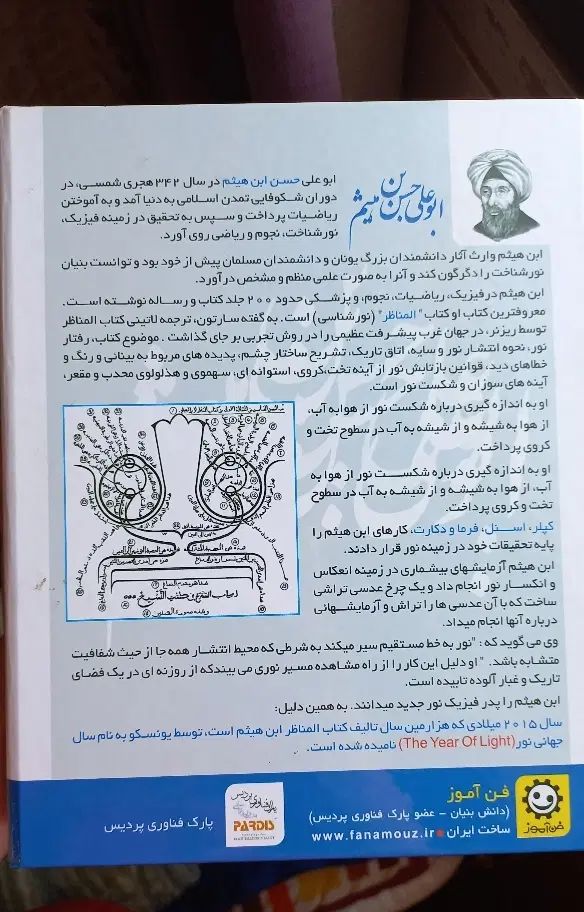 ابوعلی حسن بن هیثم
ابو علی حسن ابن هیثم در سال ۳۴۲ هجری شمسی، در
دوران شکوفایی تمدن اسلامی به دنیا آمد و به آموختن
ریاضیات پرداخت و سپس به تحقیق در زمینه فیزیک،
نورشناخت، نجوم و ریاضی روی آورد.
ابن هیثم وارث آثار دانشمندان بزرگ یونان و دانشمندان مسلمان پیش از خود بود و توانست بنیان
نورشناخت را دگرگون کند و آنرا به صورت علمی منظم و مشخص درآورد.
ابن هیثم در فیزیک، ریاضیات، نجوم، و پزشکی حدود ۲۰۰ جلد کتاب و رساله نوشته است.
معروفترین کتاب او کتاب "المناظر" (نورشناسی) است. به گفته سارتون، ترجمه لاتینی کتاب المناظر
توسط ریزنر، در جهان غرب پیشرفت عظیمی را در روش تجربی بر جای گذاشت. موضوع کتاب، رفتار
نور، نحوه انتشار نور و سایه، اتاق تاریک، تشریح ساختار چشم، پدیده های مربوط به بینائی و رنگ و
خطاهای دید، قوانین بازتابش نور از آینه تخت،کروی، استوانه ای، سهموی و هذلولوی محدب و مقعر،
آینه های سوزان و شکست نور است.
او به اندازه گیری درباره شکست نور از هوا به آب،
از هوا به شیشه و از شیشه به آب در سطوح تخت و
کروی پرداخت.
او به اندازه گیری درباره شکست نور از هوا به
آب، از هوا به شیشه و از شیشه به آب در سطوح
تخت و کروی پرداخت.
کپلر، اسنل، فرما و دکارت، کارهای ابن هیثم را
پایه تحقیقات خود در زمینه نور قرار دادند.
ابن هیثم آزمایشهای بیشماری در زمینه انعکاس
و انکسار نور انجام داد و یک چرخ عدسی تراشی
ساخت که با آن عدسی ها را تراش و آزمایشهائی
درباره آنها انجام میداد.
وی می گوید که: "نور به خط مستقیم سیر میکند به شرطی که محیط انتشار همه جا از حیث شفافیت
متشابه باشد." او دلیل این کار را از راه مشاهده مسیر نوری می بیند که از روزنه ای در یک فضای
تاریک و غبار آلوده تابیده است.
ابن هیثم را پدر فیزیک نور جدید میدانند. به همین دلیل:
سال ۲۰۱۵ میلادی که هزارمین سال تالیف کتاب المناظر ابن هیثم است، توسط یونسکو به نام سال
جهانی نور (The Year Of Light) نامیده شده است.
فن آموز
(دانش بنیان - عضو پارک فناوری پردیس)
ساخت ایران www.fanamouz.ir
فن آموز
PARDIS
پارک فناوری پردیس